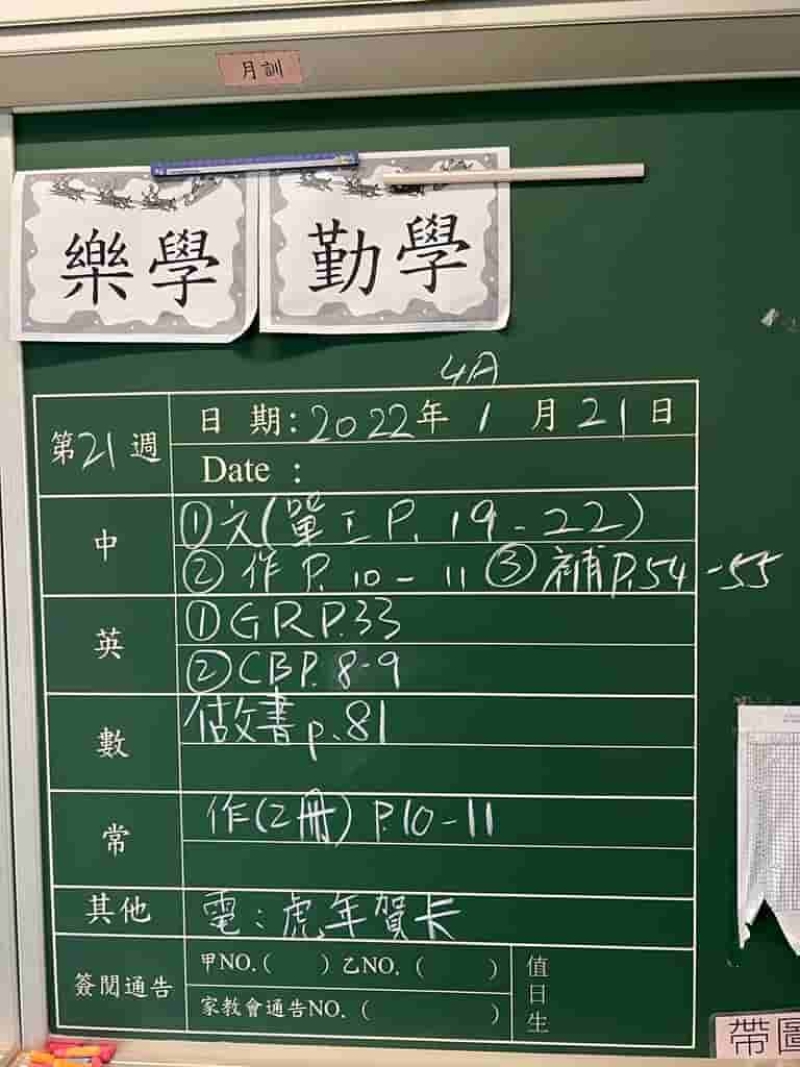 月訓
樂學
勤學
4A
第21週
日期:2022年1月21日
Date :
中
①文(單工P.19-22)
②作P.10-11 ③補P.54-55
英
①GRP.33
②CBP.8-9
數
做書p.81
常
作(2冊)P.10-11
其他
電:虎年賀卡
簽閱通告
甲NO.( )乙NO.( )
家教會通告NO.( )
值日生
帶圖